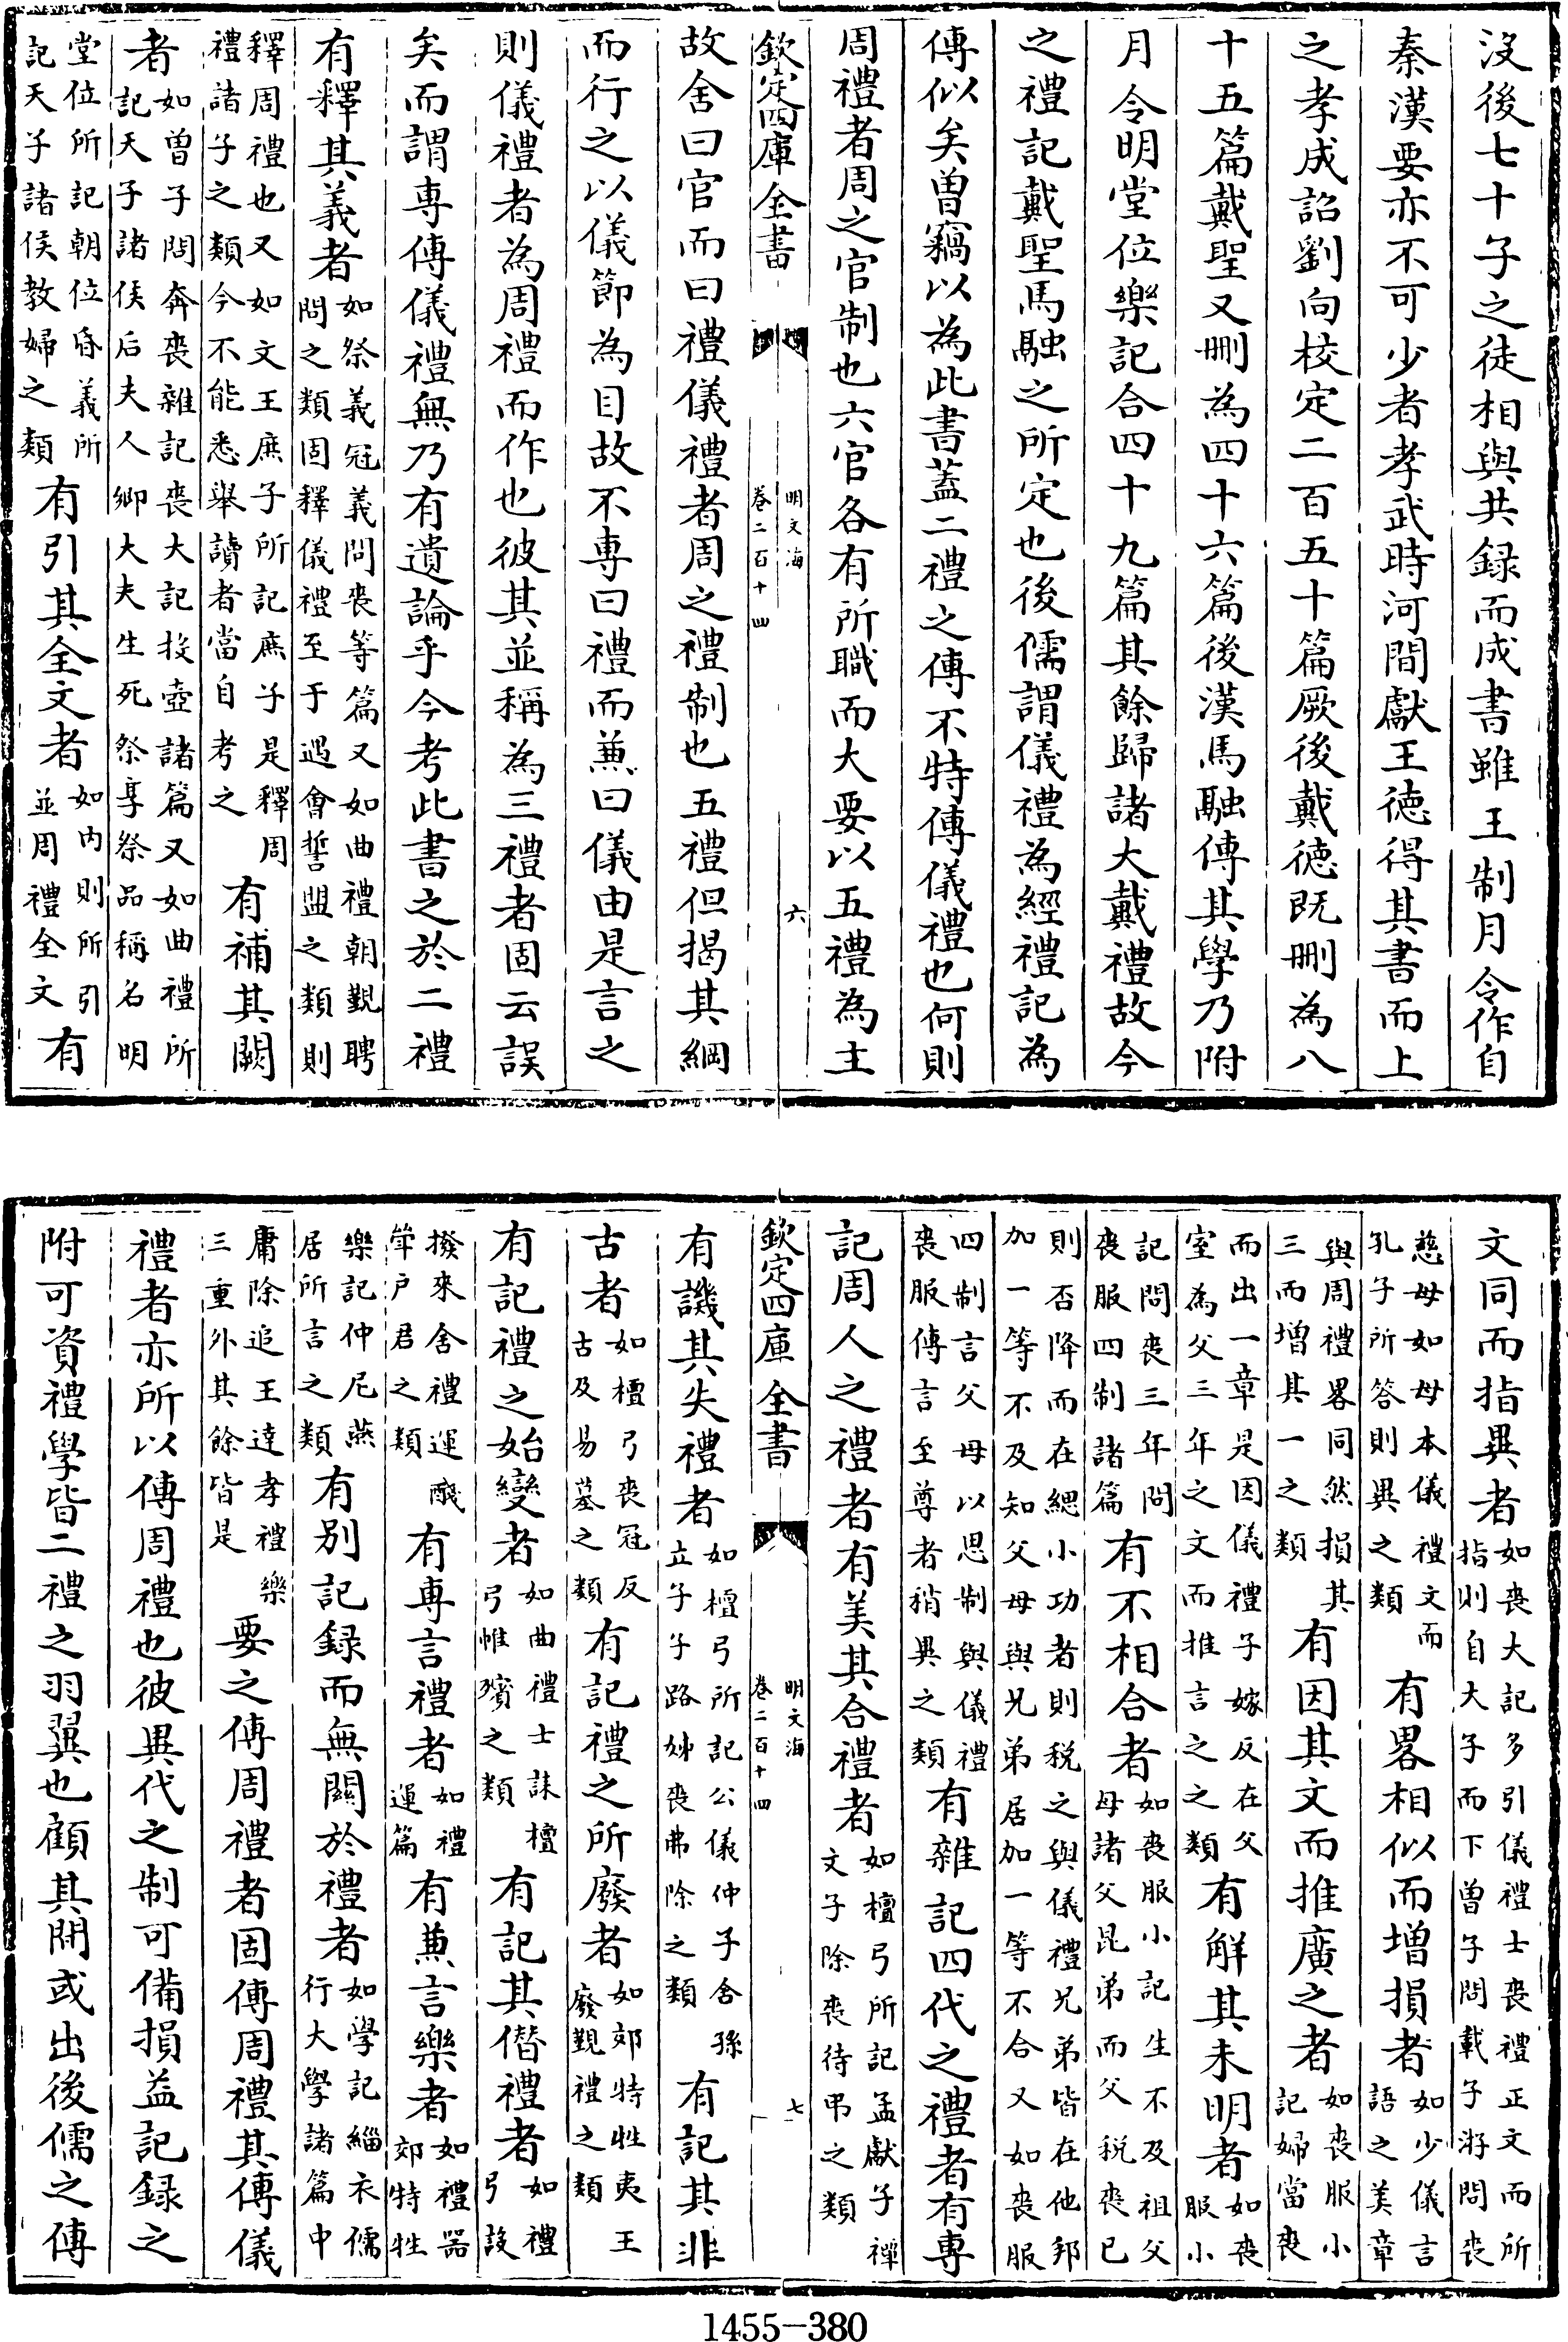 沒後七十子之徒相與共録而成書雖王制月令作自
秦漢要亦不可少者孝武時河間獻王徳得其書而上
之孝成詔劉向校定二百五十篇厥後戴徳既刪為八
十五篇戴聖又刪為四十六篇後漢馬融傳其學乃附
月令明堂位樂記合四十九篇其餘歸諸大戴禮故今
之禮記戴聖馬融之所定也後儒謂儀禮為經禮記為
傳似矣曽竊以為此書蓋二禮之傳不特傳儀禮也何則
周禮者周之官制也六官各有所職而大要以五禮為主
欽定四庫全書 明文海 卷二百十四 六
故舍曰官而曰禮儀禮者周之禮制也五禮但揭其綱
而行之以儀節為目故不専曰禮而兼曰儀由是言之
則儀禮者為周禮而作也彼其並稱為三禮者固云誤
矣而謂専傳儀禮無乃有遺論乎今考此書之於二禮
有釋其義者如祭義冠義問喪等篇又如曲禮朝覲聘問之類固釋儀禮至于遇會誓盟之類則
釋周禮也又如文王庶子所記庶子是釋周禮諸子之類今不能悉舉讀者當自考之有補其闕
者如曽子問奔喪雜記喪大記投壺諸篇又如曲禮所記天子諸侯后夫人卿大夫生死祭享祭品稱名明
堂位所記朝位昏義所記天子諸侯教婦之類有引其全文者如内則所引並周禮全文有
文同而指異者如喪大記多引儀禮士喪禮正文而所指則自大子而下曽子問載子游問喪
慈母如母本儀禮文而孔子所答則異之類有畧相似而增損者如少儀言語之美章
與周禮畧同然損其三而增其一之類有因其文而推廣之者如喪服小記婦當喪
而出一章是因儀禮子嫁反在父室為父三年之文而推言之之類有解其未明者如喪服小
記問喪三年問喪服四制諸篇有不相合者如喪服小記生不及祖父母諸父昆弟而父税喪已
則否降而在緦小功者則税之與儀禮兄弟皆在他邦加一等不及知父母與兄弟居加一等不合又如喪服
四制言父母以恩制與儀禮喪服傳言至尊者稍異之類有雜記四代之禮者有専
記周人之禮者有美其合禮者如檀弓所記孟獻子禫文子除喪待弔之類
欽定四庫全書 明文海 卷二百十四 七
有譏其失禮者如檀弓所記公儀仲子舍孫立子子路姊喪弗除之類有記其非
古者如檀弓喪冠反古及易墓之類有記禮之所廢者如郊特牲夷王廢覲禮之類
有記禮之始變者如曲禮士誄檀弓帷殯之類有記其僭禮者如禮弓設
撥來舍禮運醆斝尸君之類有専言禮者如禮運篇有兼言樂者如禮器郊特牲
樂記仲尼燕居所言之類有别記録而無關於禮者如學記緇衣儒行大學諸篇中
庸除追王達孝禮樂三重外其餘皆是要之傳周禮者固傳周禮其傳儀
禮者亦所以傳周禮也彼異代之制可備損益記録之
附可資禮學皆二禮之羽翼也顧其開或出後儒之傳
1455-380